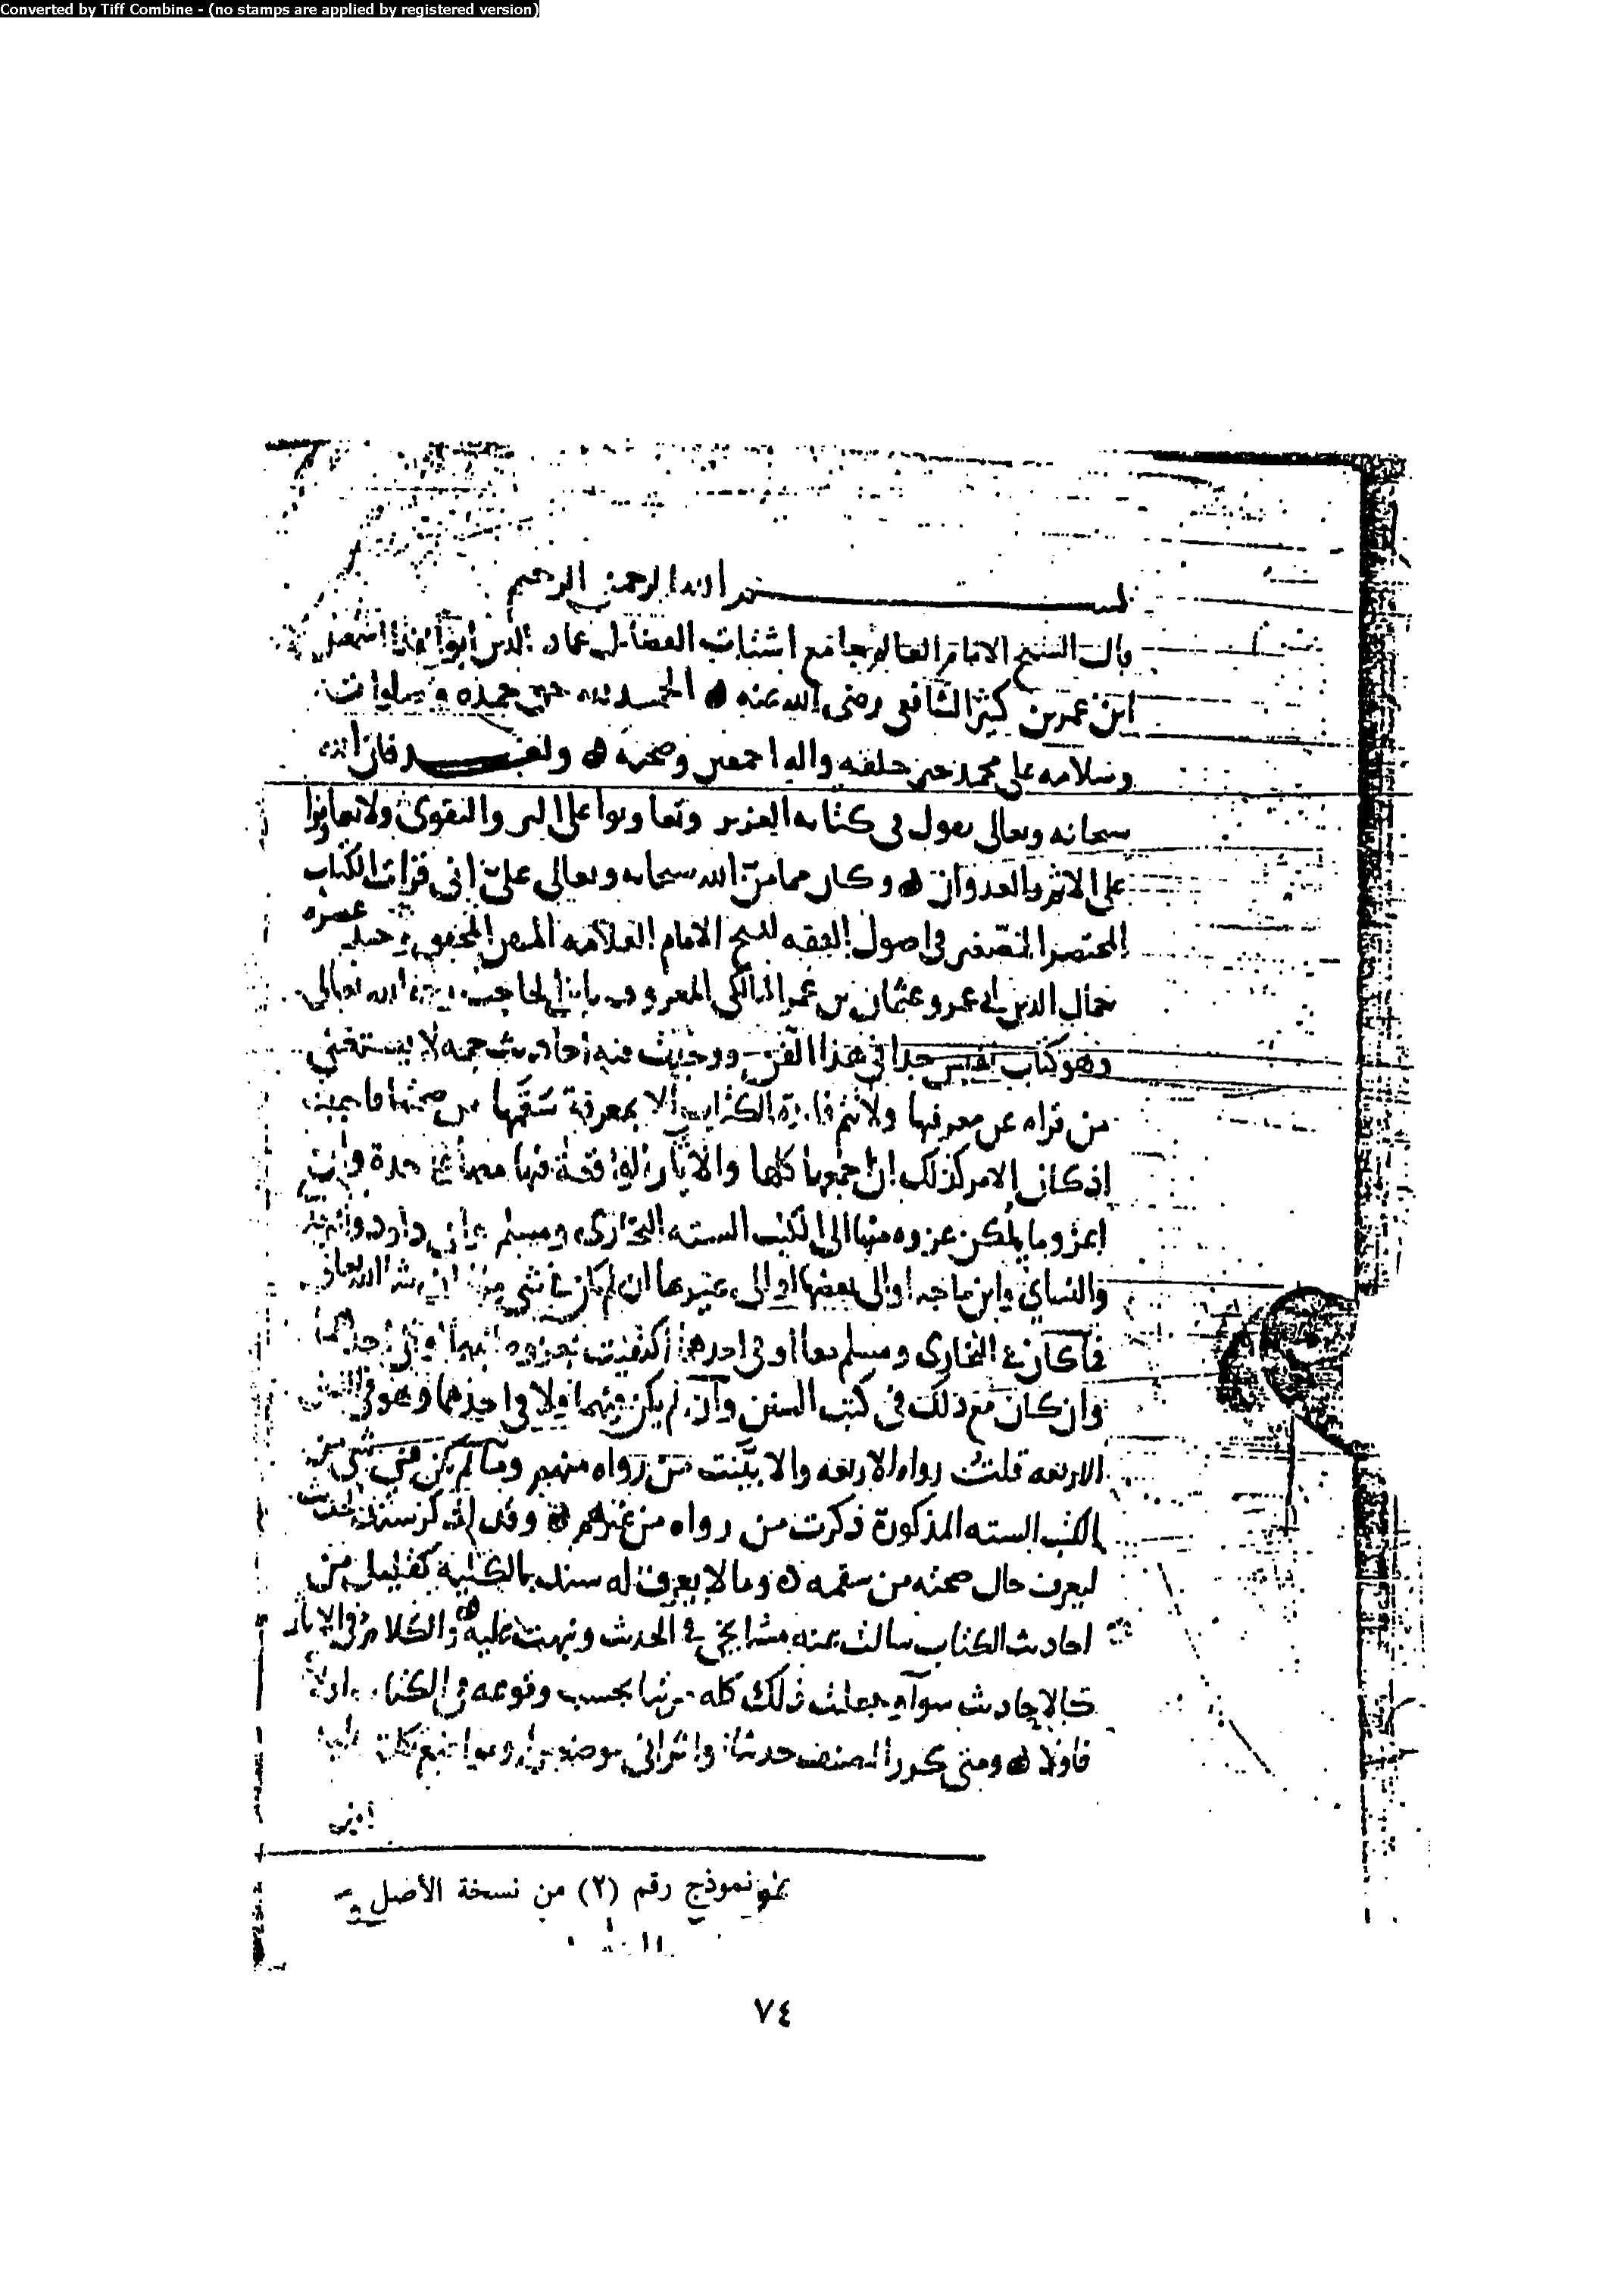 Converted by Tiff Combine - (no stamps are applied by registered version)
بسم الله الرحمن الرحيم
قال الشيخ الامام العالم جامع اشتات الفضايل عماد الدين ابو الفدا اسمعيل
ابن عمر بن كثير الشافعي رضى الله عنه الحمد لله حق حمده وصلوات
وسلامه على محمد خير خلقه واله اجمعين وصحبه وبعد فان الله
سبحانه وتعالى يقول فى كتابه العزيز وتعاونوا على البر والتقوى ولا تعاونوا
على الاثم والعدوان وكان مما من الله سبحانه وتعالى على انى قرات الكتاب
المختصر الصغير فى اصول الفقه للشيخ الامام العلامه المحقق وحيد عصره
جمال الدين ابى عمرو عثمان بن عمر المالكى المعروف بابن الحاجب رحمه الله تعالى
وهو كتاب نفيس جدا فى هذا الفن ووجدت فيه احاديث جمه لا يستغنى
من قراه عن معرفتها ولا تتم فايدة الكتاب الا بمعرفة سقمها من صحتها
اذ كان الامر كذلك ان اجمعها كلها والاثار الواقعة فيها معها على حدة وان
اعزو ما يمكن عزوه منها الى الكتب السته البخارى ومسلم وابى داود والترمذى
والنساي وابن ماجه او الى بعضها او الى غيرها ان لم يكن فى شى منها ان شا الله تعالى
فما كان فى البخارى ومسلم معا او فى احدهما اكتفيت بعزوه اليهما او الى احدهما
وان كان مع ذلك فى كتب السنن وان لم يكن فيهما ولا فى احدهما وهو فى السنن
الاربعه قلت رواه الاربعه والا بينت من رواه منهم وما لم يكن فى شى من
الكتب السته المذكورة ذكرت من رواه من غيرهم وقد اذكر سند الحديث
ليعرف حال صحته من سقمه وما لا يعرف له سند بالكلية كقليل من
احاديث الكتاب سالت عنه مشايخى فى الحديث ونبهت عليه والكلام فى الاثار
كالاحاديث سوا جعلت ذلك كله مرتبا بحسب وقوعه فى الكتاب اولا
فاولا ومتى كرر المصنف حديثا او اثرا فى موضعين او مواضع تكلمت عليه
نموذج رقم (٢) من نسخة الأصل
٧٤